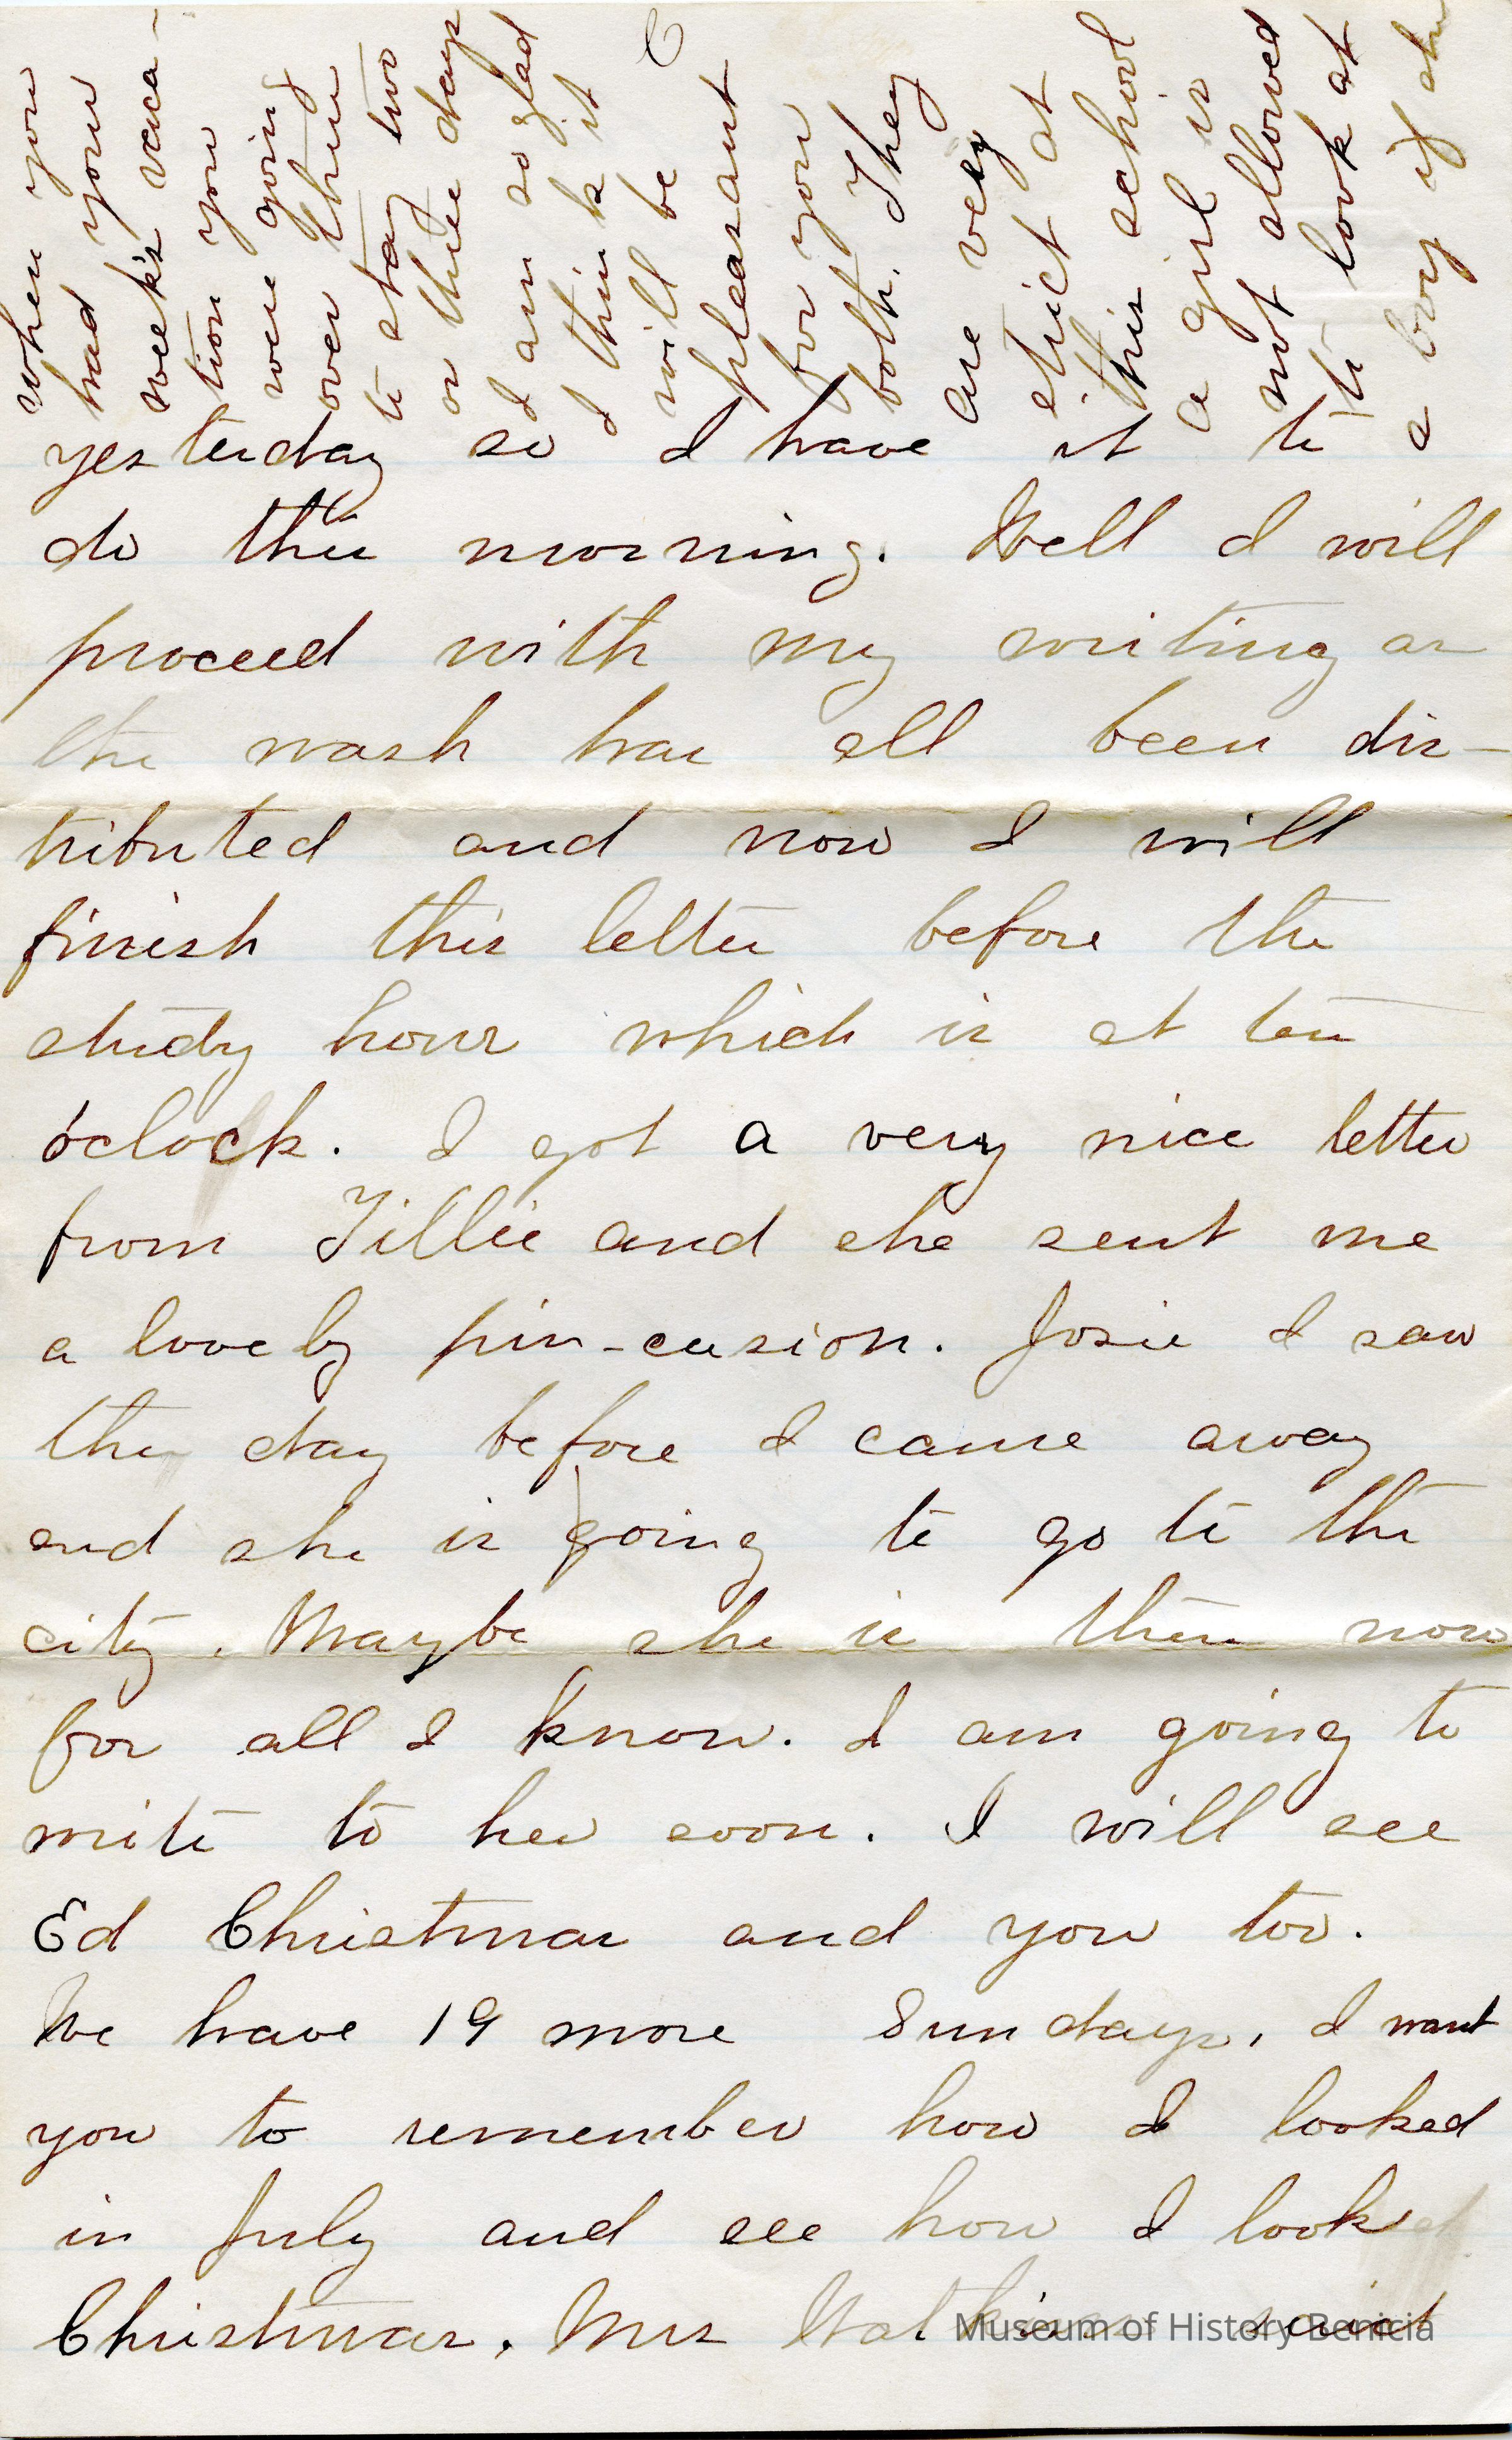 when you
had your
week's vaca-
tion you
were going
over there
to stay two
or three days
I am so glad
I think it
will be
pleasant
for you
both. They
are very
strict at
this school
a girl is
not allowed
to look at
a boy if she
yesterday so I have it to
do this morning. Well I will
proceed with my writing as
the wash has all been dis-
tributed and now I will
finish this letter before the
study hour which is at ten
o'clock. I got a very nice letter
from Tillie and she sent me
a lovely pin-cusion. Josie I saw
the day before I came away
and she is going to go to the
city. Maybe she is there now
for all I know. I am going to
write to her soon. I will see
Ed Christmas and you too.
We have 19 more Sundays, I want
you to remember how I looked
in July and see how I look
Christmas. Mrs Watkins said
Museum of History Benicia